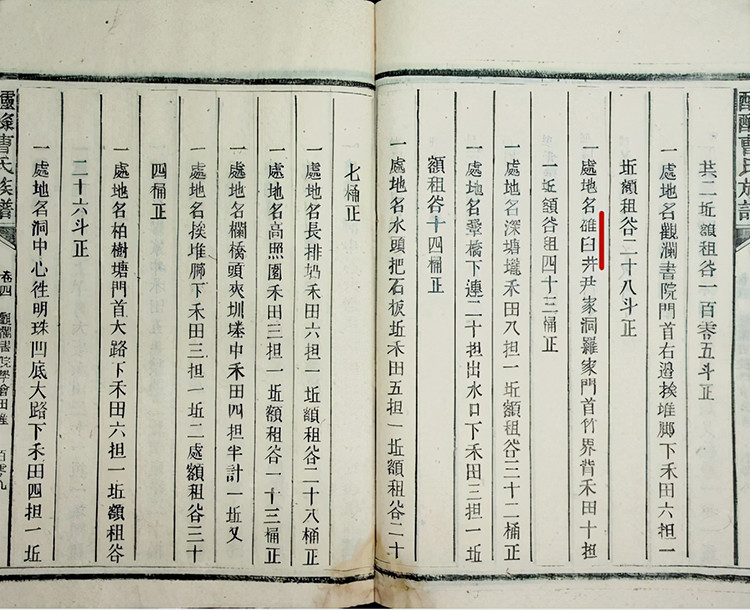 曹氏族譜
共二坵額租谷一百零五斗正
一處地名觀瀾書院門首右邉挨堆脚下禾田六担一
坵額租谷二十八斗正
一處地名碓臼井尹家洞羅家門首竹界背禾田十担
一坵額谷租四十三桶正
一處地名深塘壠禾田八担一坵額租谷三十二桶正
一處地名羣橋下連二十担出水口下禾田三担一坵
額租谷十四桶正
一處地名水頭把石板坵禾田五担一坵額租谷二十
七桶正
一處地名長排塅禾田六担一坵額租谷二十八桶正
一處地名高照園禾田三担一坵額租谷一十三桶正
一處地名欄橋頭夾圳墈中禾田四担半計一坵又
一處地名挨堆脚下禾田三担一坵二處額租谷三十
四桶正
一處地名柏樹塘門首大路下禾田六担一坵額租谷
二十六斗正
一處地名洞中心徃明珠凹底大路下禾田四担一坵
曹氏族譜
卷四
觀瀾書院學會田產
百零九